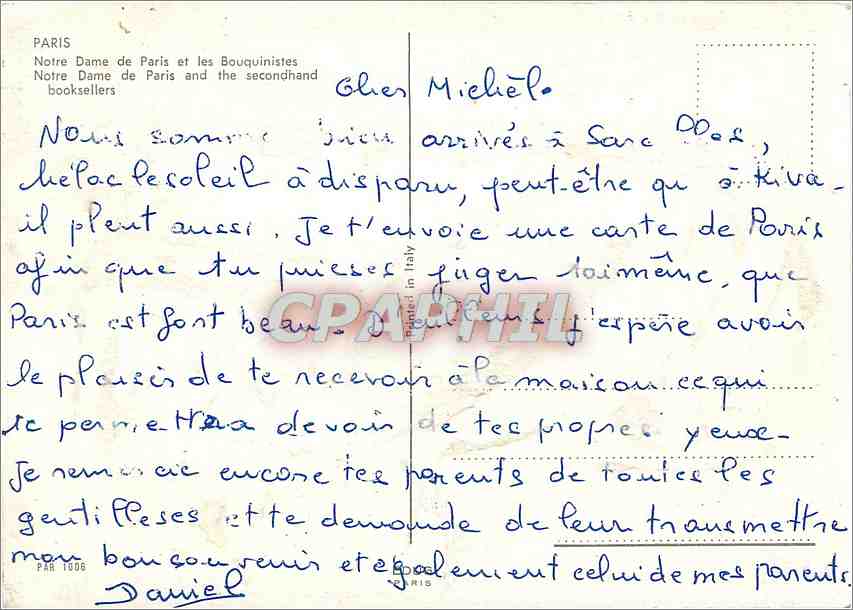 PARIS
Notre Dame de Paris et les Bouquinistes
Notre Dame de Paris and the secondhand
booksellers
Cher Michèl.
Nous somme bien arrivés à Sarc
hélac le soleil à disparu, peut-être qu à Kiva-
il pleut aussi. Je t'envoie une carte de Paris
afin que tu puieses juger toi même, que
Paris est fort beau. D'ailleurs j'espère avoir
le plaisir de te recevoir à la maison ce qui
te permettra de voir de tes propres yeux-
Je remercie encore tes parents de toutes les
gentilleses et te demande de leur transmettre
mon bon souvenir et egalement celui de mes parents.
Daniel
Printed in Italy
CPAPHIL
PAR 1006
PARIS